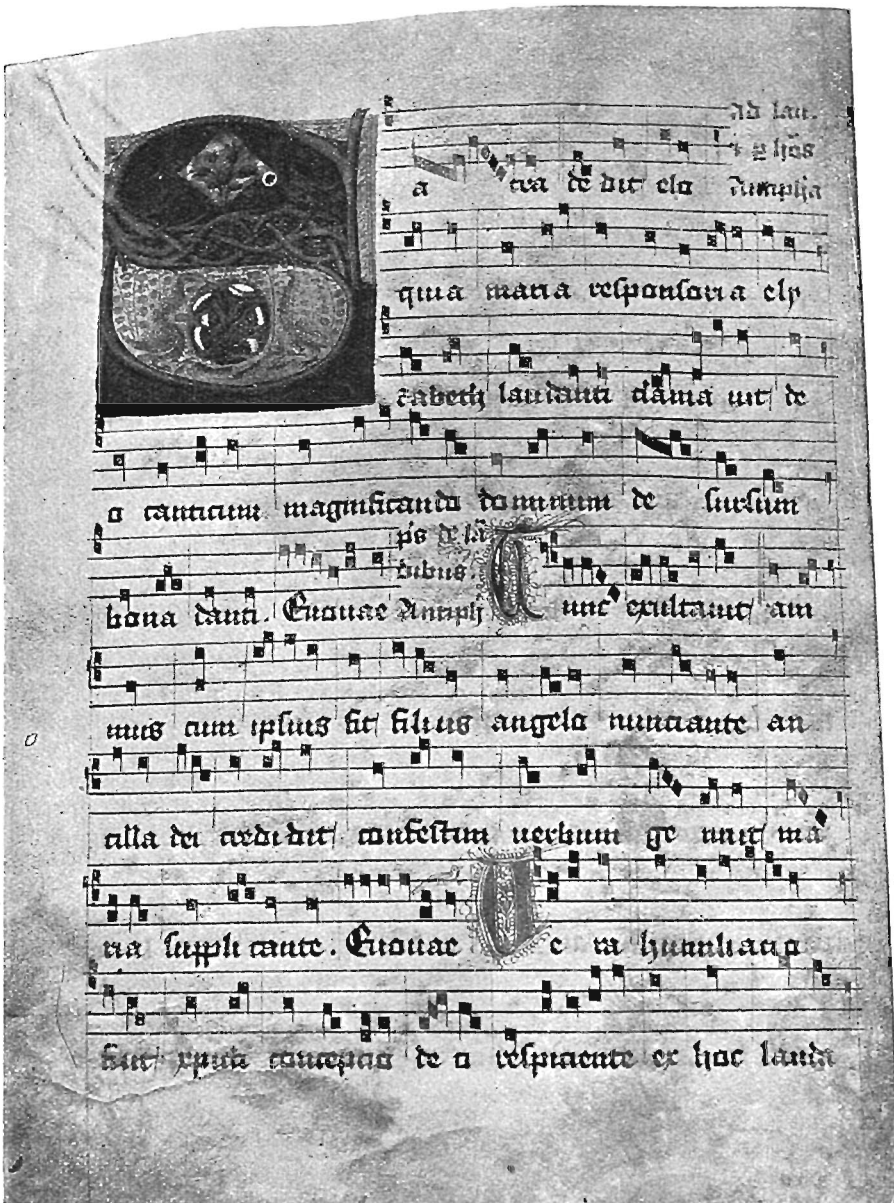 ad lau.
a cta de dit elo Antipha
quia maria responsoria ely
zabeth laudanti clama uit de
o canticum magnificando dominum de sursum
ps de la
dibus.
bona danti. Euouae Antiph Tunc exultauit am
mus cum ipsius fit filius angelo nunciante an
cilla dei credidit confestim uerbum ge nuit ma
ria suppli cante. Euouae Ve ra humiliatio
fuit xpisti conceptio de o respiciente ex hoc lauda